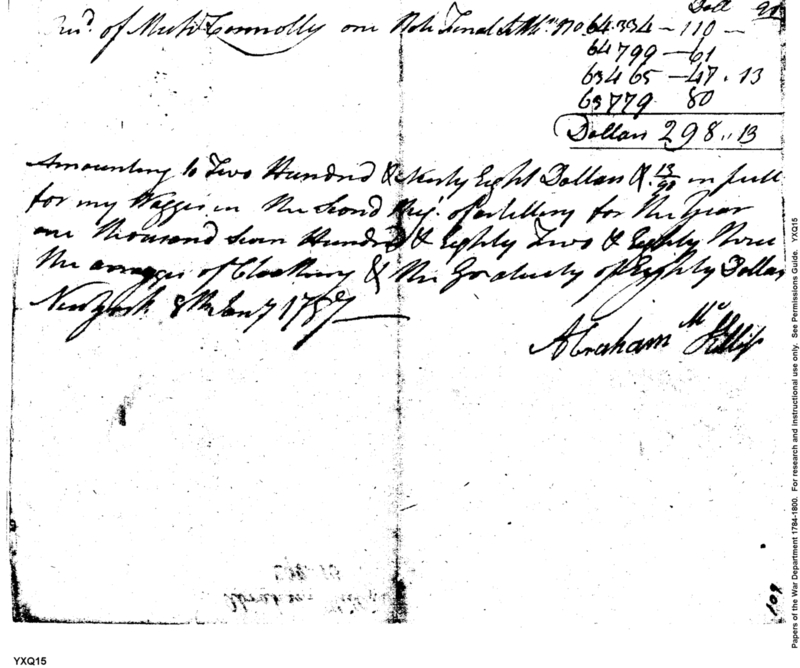 Doll 90
Recd. of Mich Connolly one Note Final Settlt. No 64334 - 110 -
64799 - 61
63465 - 47 . 13
63779 80
Dollars 298 .. 13
Amounting to Two Hundred & Ninty Eight Dollars & 13/90 in full
for my Wages in the Second Regt. of artillery for the Year
one thousand Seven Hundred & Eighty Two & Eighty Three
the arrages of Cloathing & the Graduety of Eighty Dollars
New York 8th 1787
Abraham Mc
109
Papers of the War Department 1784-1800. For research and instructional use only. See Permissions Guide. YXQ15
YXQ15